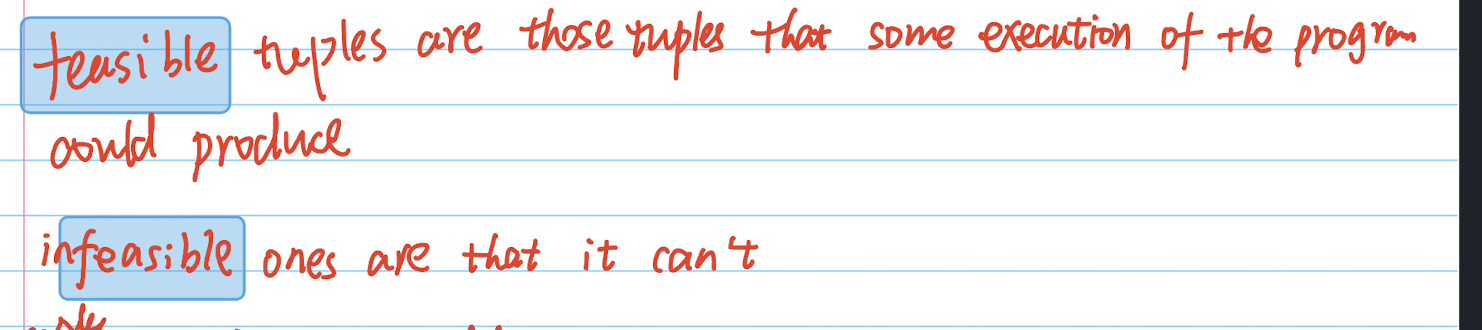 feasible tuples are those tuples that some execution of the program
could produce
infeasible ones are that it can't